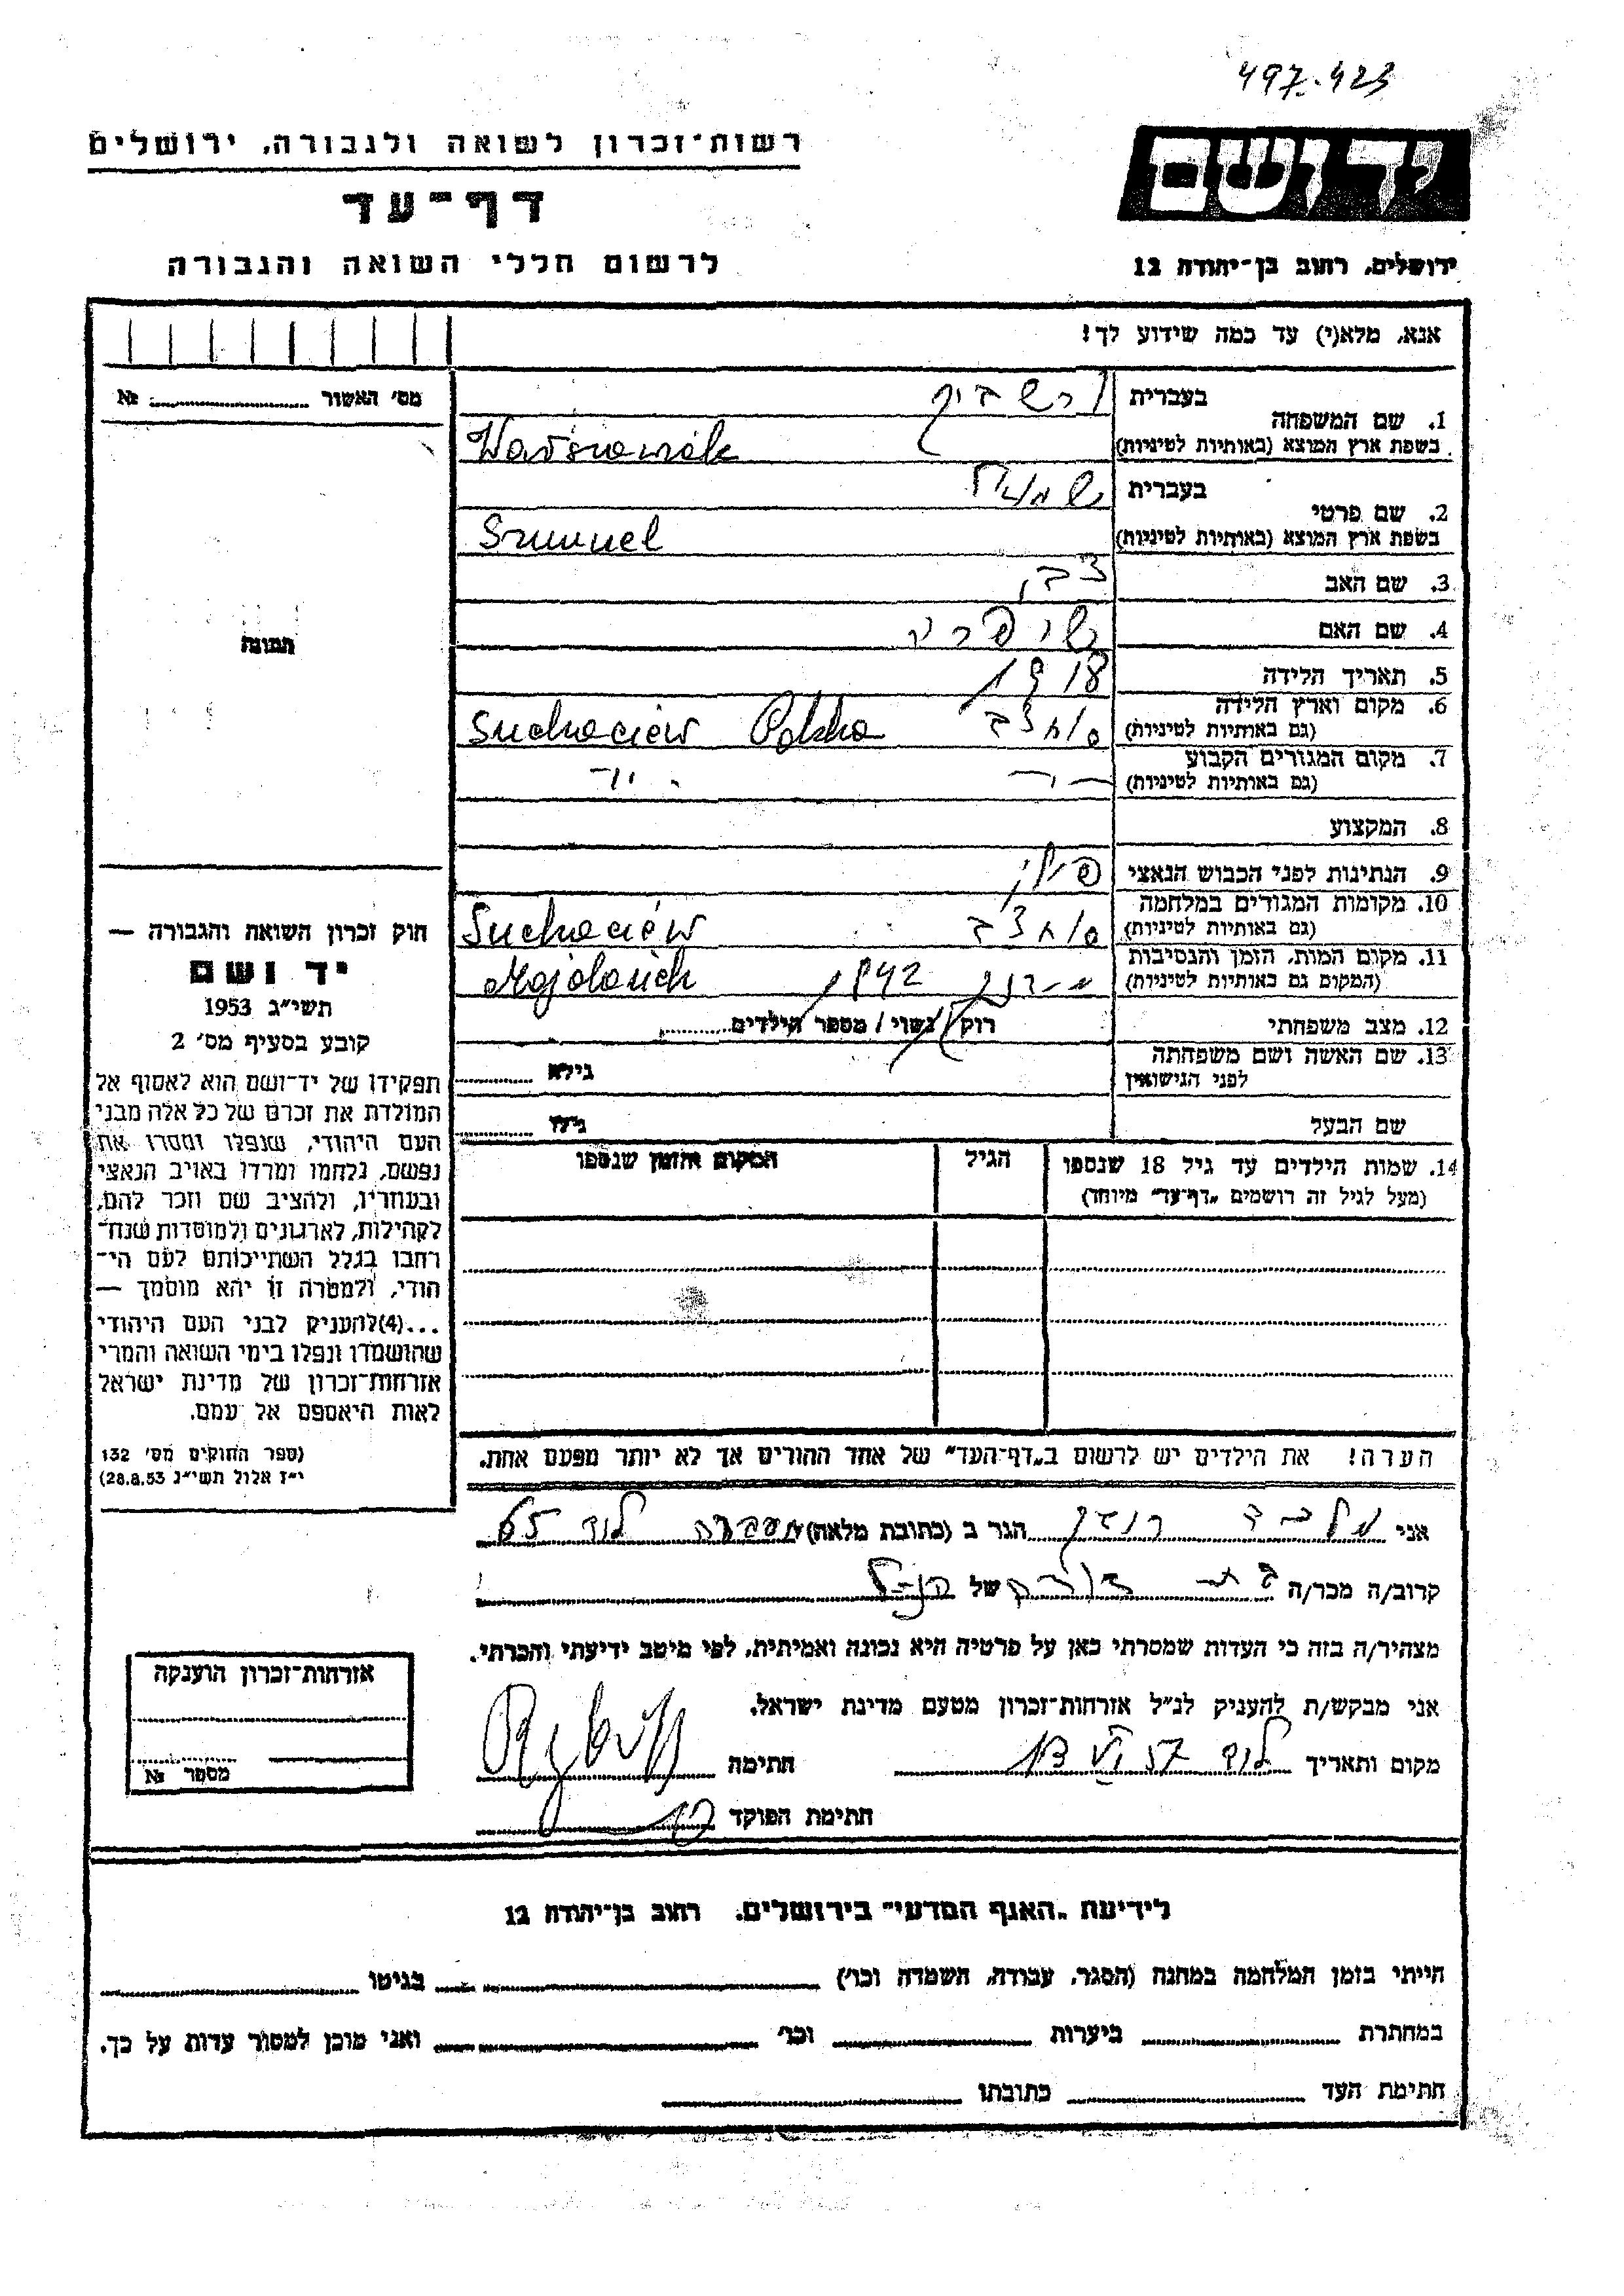 497.423
רשות־זכרון לשואה ולגבורה, ירושלים
דף־עד
לרשום חללי השואה והגבורה
יד ושם
ירושלים, רחוב בן־יהודה 12
אנא, מלא(י) עד כמה שידוע לך!
מס׳ האשור № ........
תמונה
1. שם המשפחה
בעברית
בשפת ארץ המוצא (באותיות לטיניות) Warszawiak
2. שם פרטי
בעברית
בשפת ארץ המוצא (באותיות לטיניות) Szmuel
3. שם האב
4. שם האם
5. תאריך הלידה 1918
6. מקום וארץ הלידה
(גם באותיות לטיניות) Suchaciew Polska
7. מקום המגורים הקבוע
(גם באותיות לטיניות)
8. המקצוע
9. הנתינות לפני הכבוש הנאצי
10. מקומות המגורים במלחמה
(גם באותיות לטיניות) Suchaciew
11. מקום המות, הזמן והנסיבות
(המקום גם באותיות לטיניות) 1942 Majdanek
12. מצב משפחתי רוק / נשוי / מספר הילדים ........
13. שם האשה ושם משפחתה
לפני הנישואין גילא ........
שם הבעל גילו ........
14. שמות הילדים עד גיל 18 שנספו
(מעל לגיל זה רושמים „דף־עד״ מיוחד)
הגיל
המקום והזמן שנספו
הערה! את הילדים יש לרשום ב„דף־העד״ של אחד ההורים אך לא יותר מפעם אחת.
חוק זכרון השואה והגבורה —
יד ושם
תשי״ג 1953
קובע בסעיף מס׳ 2
תפקידו של יד־ושם הוא לאסוף אל
המולדת את זכרם של כל אלה מבני
העם היהודי, שנפלו ומסרו את
נפשם, נלחמו ומרדו באויב הנאצי
ובעוזריו, ולהציב שם וזכר להם,
לקהילות, לארגונים ולמוסדות שנח־
רחבו בגלל השתייכותם לעם הי־
הודי, ולמטרה זו יהא מוסמך —
...(4)להעניק לבני העם היהודי
שהושמדו ונפלו בימי השואה והמרי
אזרחות־זכרון של מדינת ישראל
לאות היאספם אל עמם.
(ספר החוקים מס׳ 132
י״ז אלול תשי״ג 28.8.53)
אני הגר ב (כתובת מלאה) מעברה לוד 65
קרוב/ה מכר/ה של הנ״ל
מצהיר/ה בזה כי העדות שמסרתי כאן על פרטיה היא נכונה ואמיתית, לפי מיטב ידיעתי והכרתי.
אני מבקש/ת להעניק לנ״ל אזרחות־זכרון מטעם מדינת ישראל.
מקום ותאריך לוד חתימה
חתימת הפוקד
אזרחות־זכרון הוענקה
מספר №
לידיעת „האגף המדעי״ בירושלים, רחוב בן־יהודה 12
הייתי בזמן המלחמה במחנה (הסגר, עבודה, השמדה וכו׳) ........ בגיטו ........
במחתרת ........ ביערות ........ וכו׳ ........ ואני מוכן למסור עדות על כך.
חתימת העד ........ כתובתו ........